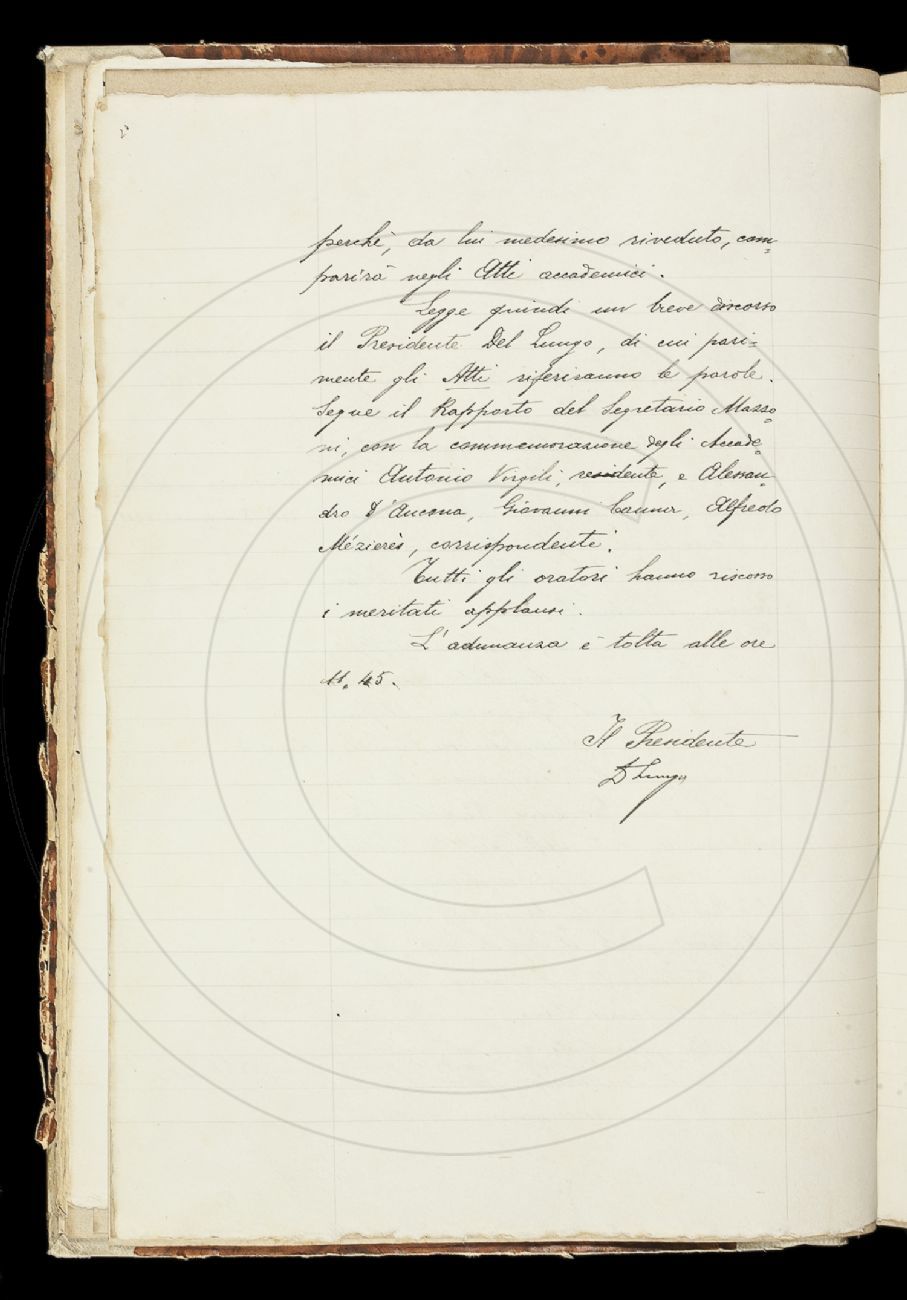 perchè, da lui medesimo riveduto, com=
parirà negli Atti accademici.
Legge quindi un breve discorso
il Presidente Del Lungo, di cui pari=
mente gli Atti riferiranno le parole.
Segue il Rapporto del Segretario Mazzo=
ni, con la commemorazione degli Accade=
mici Antonio Virgili, residente, e Alessan=
dro D'Ancona, Giovanni Canna, Alfredo
Mézierès, corrispondenti.
Tutti gli oratori hanno riscosso
i meritati applausi.
L'adunanza è tolta alle ore
11.45.
Il Presidente
D Lungo